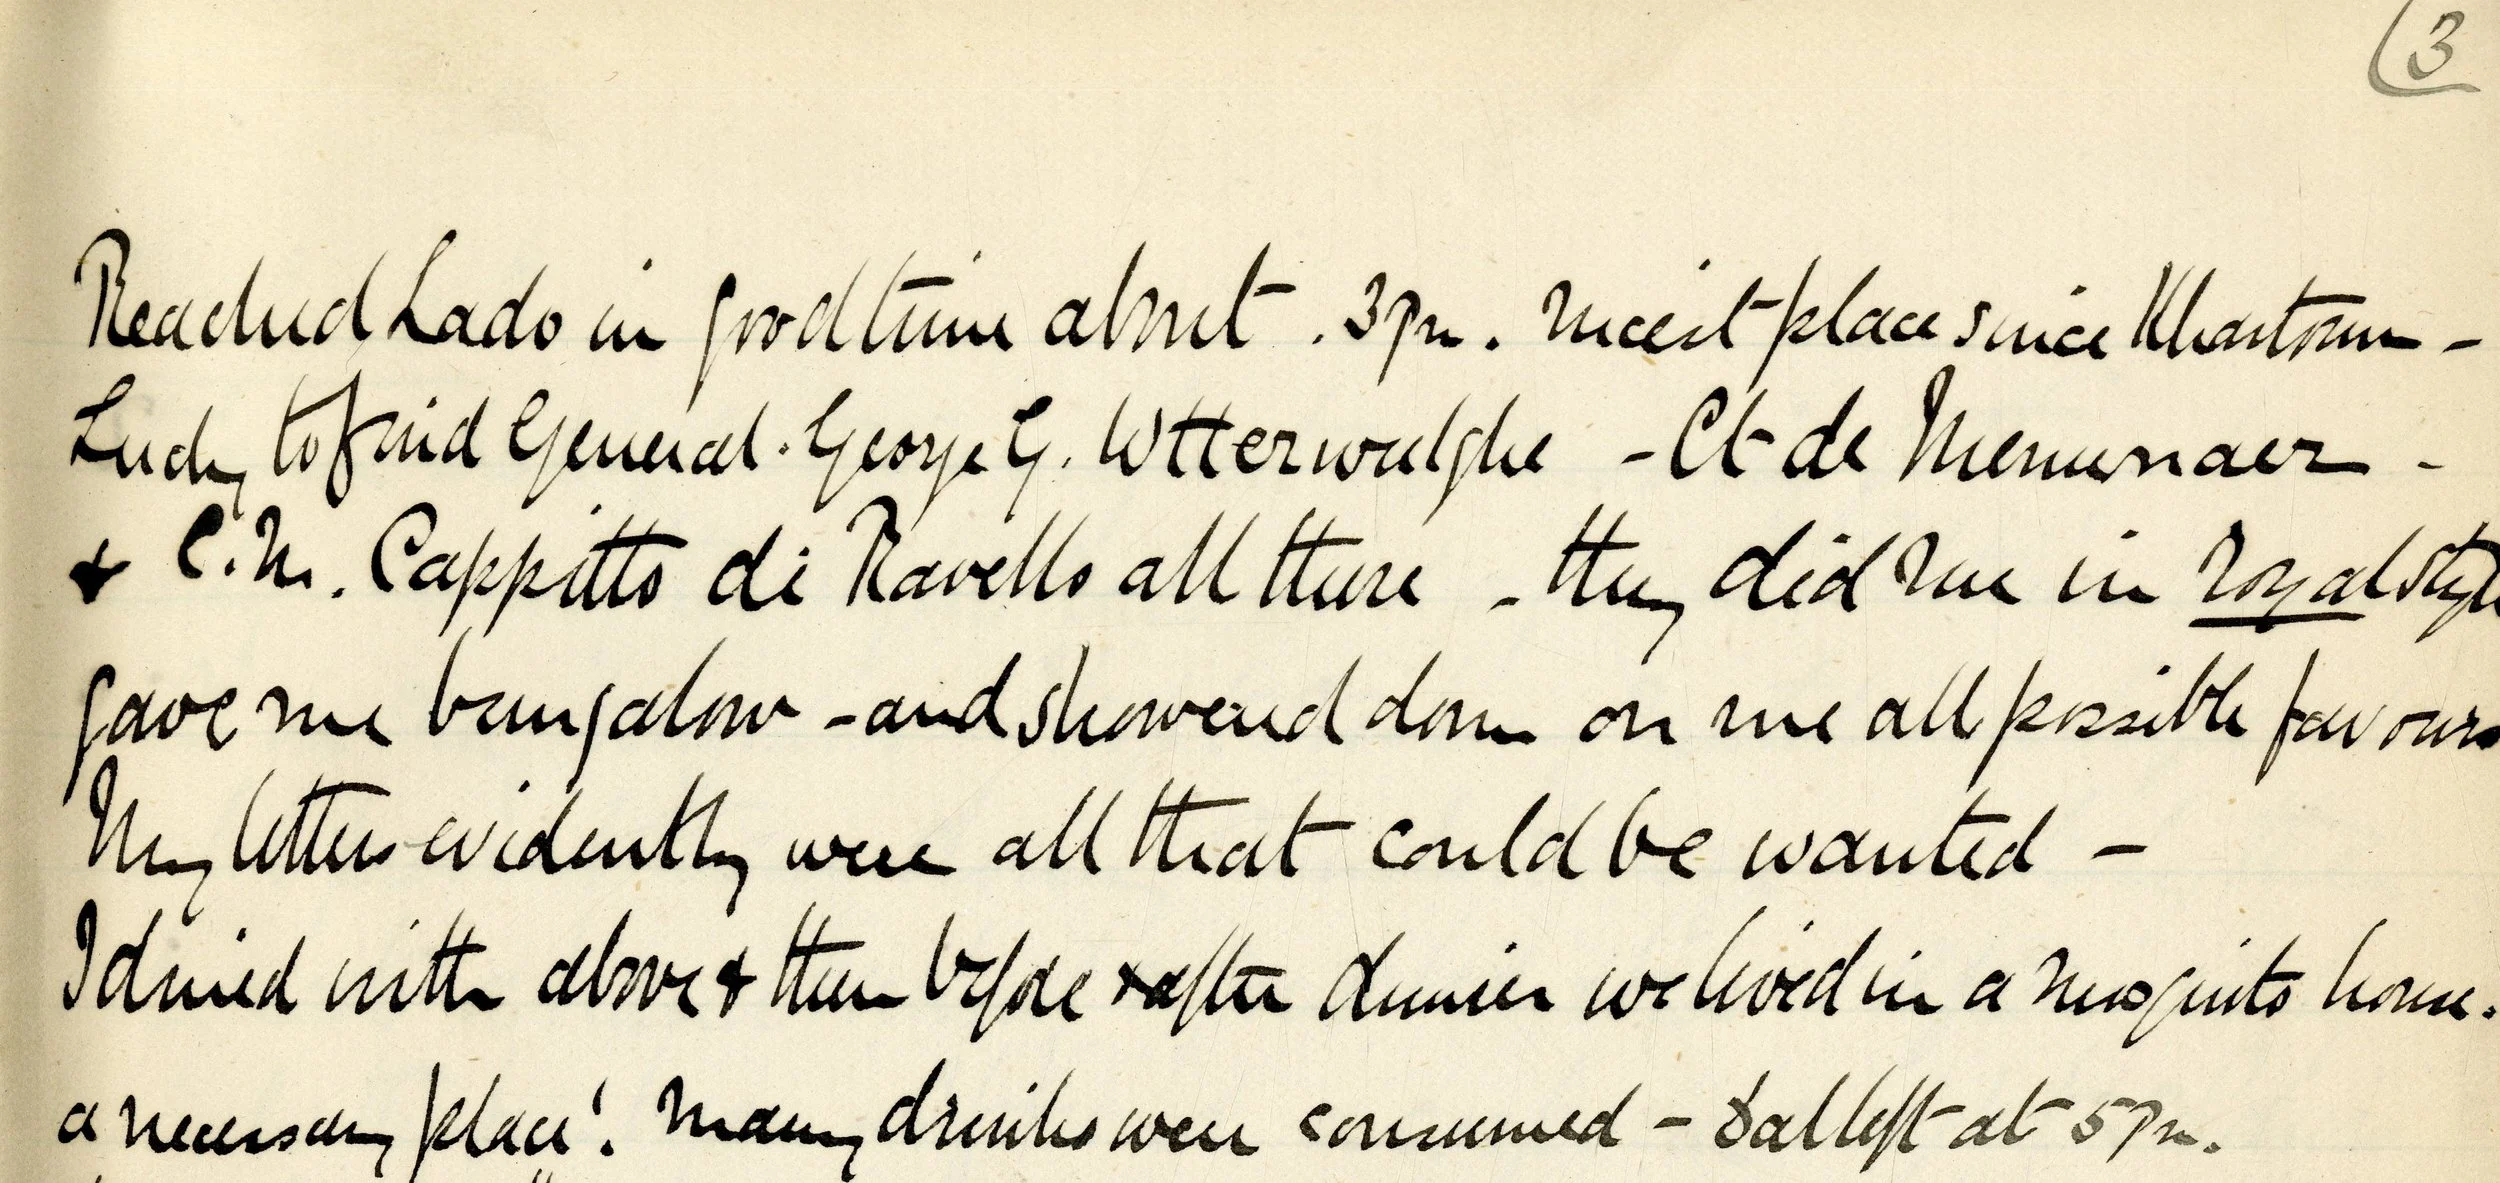 3
Reached Lado in good time about . 3 pm . Nicest place since Khartoum -
Lucky to find General . George G. Wtterwulghe - Ct de Menumaer -
& C. M. Cappitto di Ravello all there - they did me in royal style
gave me bungalow - and showered down on me all possible favours
My letters evidently were all that could be wanted -
I dined with above & then before & after dinner we lived in a mosquito house.
a necessary place! Many drinks were consumed - Dal left at 5 pm.